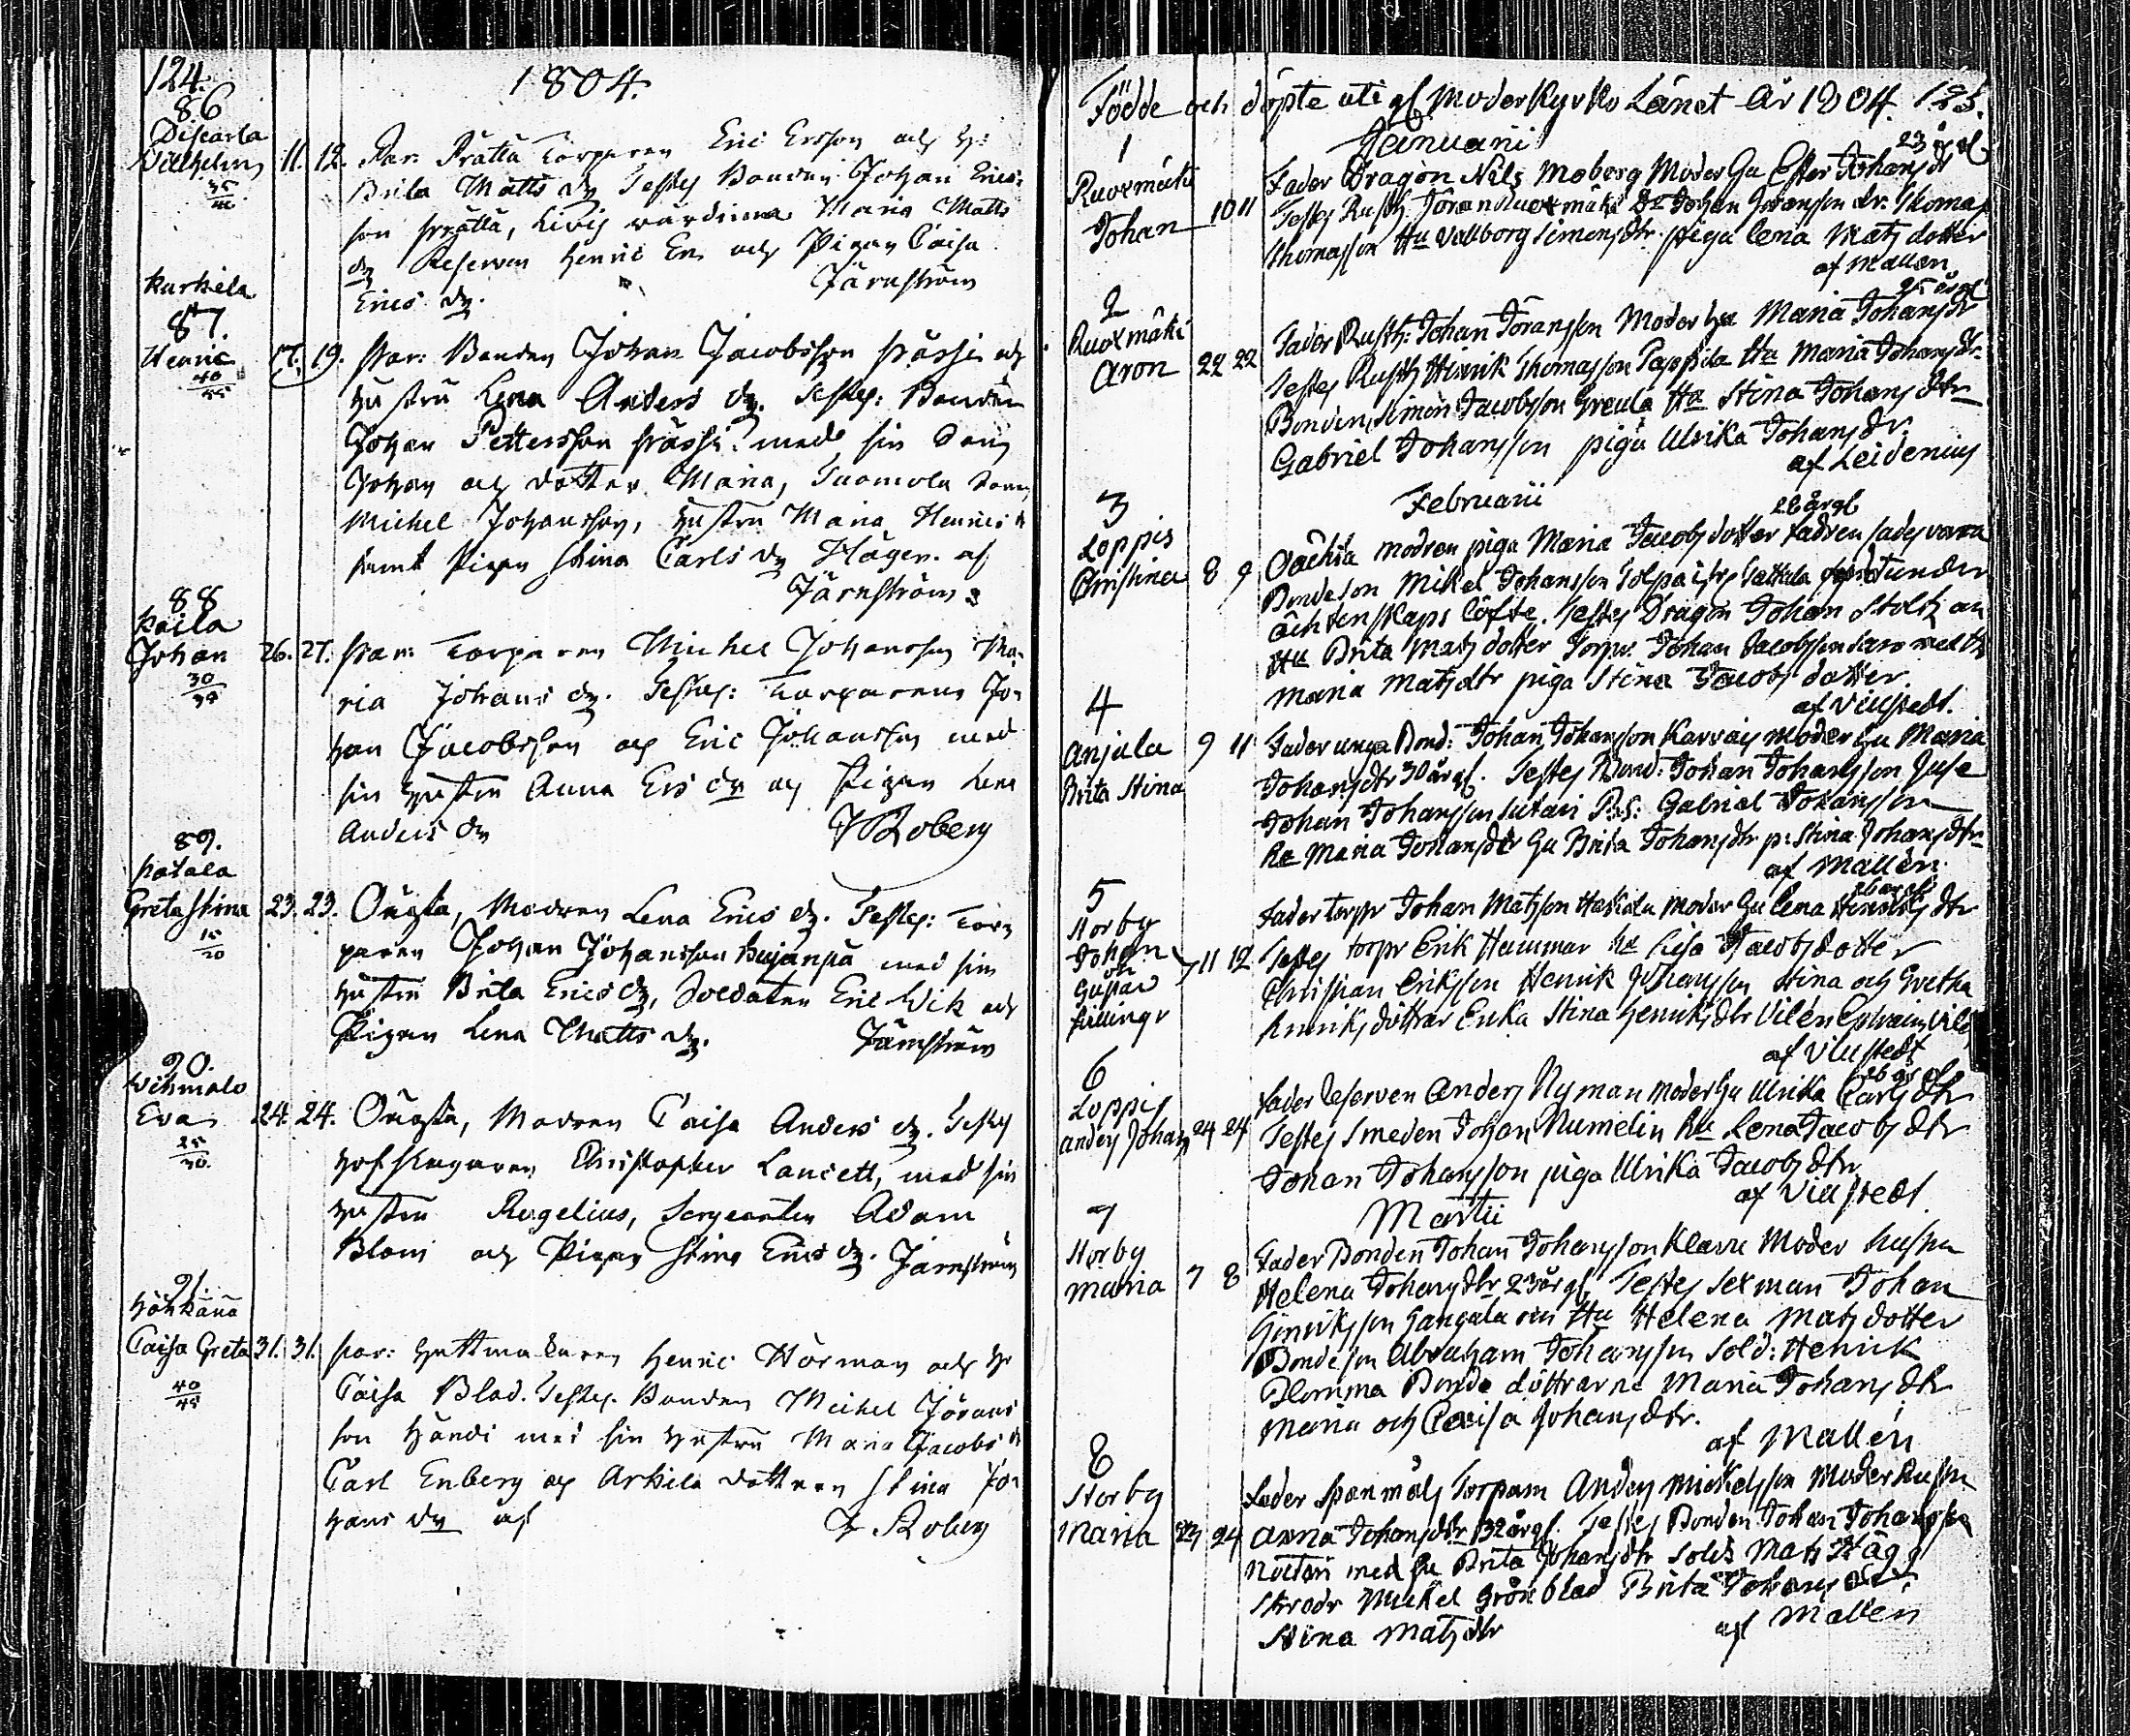 124.
1804.
86
Discarla
Villhelm 11. 12. Par: Prätta Torparen Eric Ersson och H:
35
Brita Matts dr Testes Bonden Johan Erics:
son Prätta, värdinna Maria Matts
dr Reserven Henric En och Pigan Caisa
Erics dr. Järnström
Kurkela
87.
Henric 17. 19. Par: Bonden Johan Jacobsson Prässi och
40
45
Hustru Lena Anders dr. Testes: Bonden
Johan Pettersson Prässi med sin Son
Johan och dotter Maria, Tuomola Sonen
Michel Johansson, Hustru Maria Henrics dr
samt Pigan Stina Carls dr Häger. af
Järnström
88
Paila
Johan 26. 27. Par: Torparen Michel Johansson Ma-
30
ria Johans dr. Testes: Torparens Jo-
han Jacobsson och Eric Johansson med
sin Hustru Anna Ers dr och Pigan Lena
Anders dr Roberg
89.
Patala
Greta Stina 23. 23. Oägta, Modren Lena Erics dr. Testes: Tor-
15
20
paren Johan Johansson Kujanpä med sin
Hustru Brita Erics dr, Soldaten Eric Wik och
Pigan Lena Matts dr. Järnström
90.
Wihmalo
Eva 24. 24. Oägta, Modren Caisa Anders dr. Testes
25
30.
Hofslagaren Christopher Lancett, med sin
Hustru Rogelius, Sergeanten Adam
Blom och Pigan Stina Erics dr. Järnström
91.
Hönkänä
Caisa Greta 31. 31. Par: Hattmakaren Henric Hörman och H:
40
45
Caisa Blad. Testes. Bonden Michel Jörans
son Händi med sin Hustru Maria Jacobs dr
Carl Enberg och Arkela dottren Stina Jo-
hans dr af J Roberg
Födde och döpte uti gl Moder Kyrko Länet År 1804. 125.
Januarii
1 23 år gl
Ruoxmäki Fader Dragon Nils Moberg Moder Hu Ester Johans dr
Johan 10 11 Testes Rusth Jöran Ruoxmäki Dr Johan Göransson dr: Thomas
Thomasson Hu Vallborg Simons dtr. piga Lena Mats dotter
af Mallen
2 25 år gl
Ruoxmäki Fader Rusth: Johan Göransson Moder Hu Maria Johans dr
Aron 22 22 Testes Rusth Hinrik Thomasson Pappila Hu Maria Johans dr.
Bonden Simon Jacobsson Greula Hu Stina Johans dtr
Gabriel Johansson piga Ulrika Johans dr.
af Leidenius
Februarii
3 28 år gl
Loppis Oächta modren piga Maria Jacobs dotter Fadren sades vara
Christina 8 9 Bondeson Mikel Johansson under
ächtenskaps löfte. Testes Dragon Johan Stolt
Hu Brita Mats dotter Torpr. Johan Jacobsson med Hu
Maria Mats dtr piga Stina Jacobs dotter.
af Villstedt.
4
Anjala 9 11 Fader unga Bond: Johan Johansson Karvais moder Hu Maria
Brita Stina Johans dtr 30 år gl. Testes Bond: Johan Johansson Juse
Johan Johansson Sutari B.S: Gabriel Johansson
Hu Maria Johans dtr Hu Brita Johans dtr p: Stina Johans dtr
af Mallen
5 26 år gl
Storby Fader torpr Johan Matsson Haskala moder Hu Lena Henriks dtr
Johan
och
Gustav
tvillingr 11 12 Testes torpr Erik Hammar Hu Lisa Jacobs dotter
Christian Eriksson Henrik Johansson Stina och Gretha
Henriks döttrar Erika Stina Henriks dtr Vilen Ephraim Vilen
af Villstedt
6 26 år gl
Loppis Fader Reserven Anders Nyman moder Hu Ulrika Carls dtr
Anders Johan 24 24 Testes Smeden Johan Numelin Hu Lena Jacobs dtr
Johan Johansson piga Ulrika Jacobs dtr
af Villstedt.
Martii
7
Storby Fader Bonden Johan Johansson Klavu Moder Hustru
Maria 7 8 Helena Johans dtr 23 år gl Testes Sexman Johan
Hinriksson Gangala Hu Helena Mats dotter
Bondeson Abraham Johansson Sold: Henrik
Blomma Bonde döttrarne Maria Johans dtr
Maria och Caisa Johans dtr.
af Mallen
8
Storby Fader Spanmåls Torparn Anders Mickelsson Moder Hustru
Maria 23 24 Anna Johans dtr 32 år gl. Testes Bonden Johan Johansson
Nottari med Hu Brita Johans dtr Sold: Mats Hägg
Skrodr Mickel Grönblad Brita Johans dtr
Stina Mats dtr af Mallen